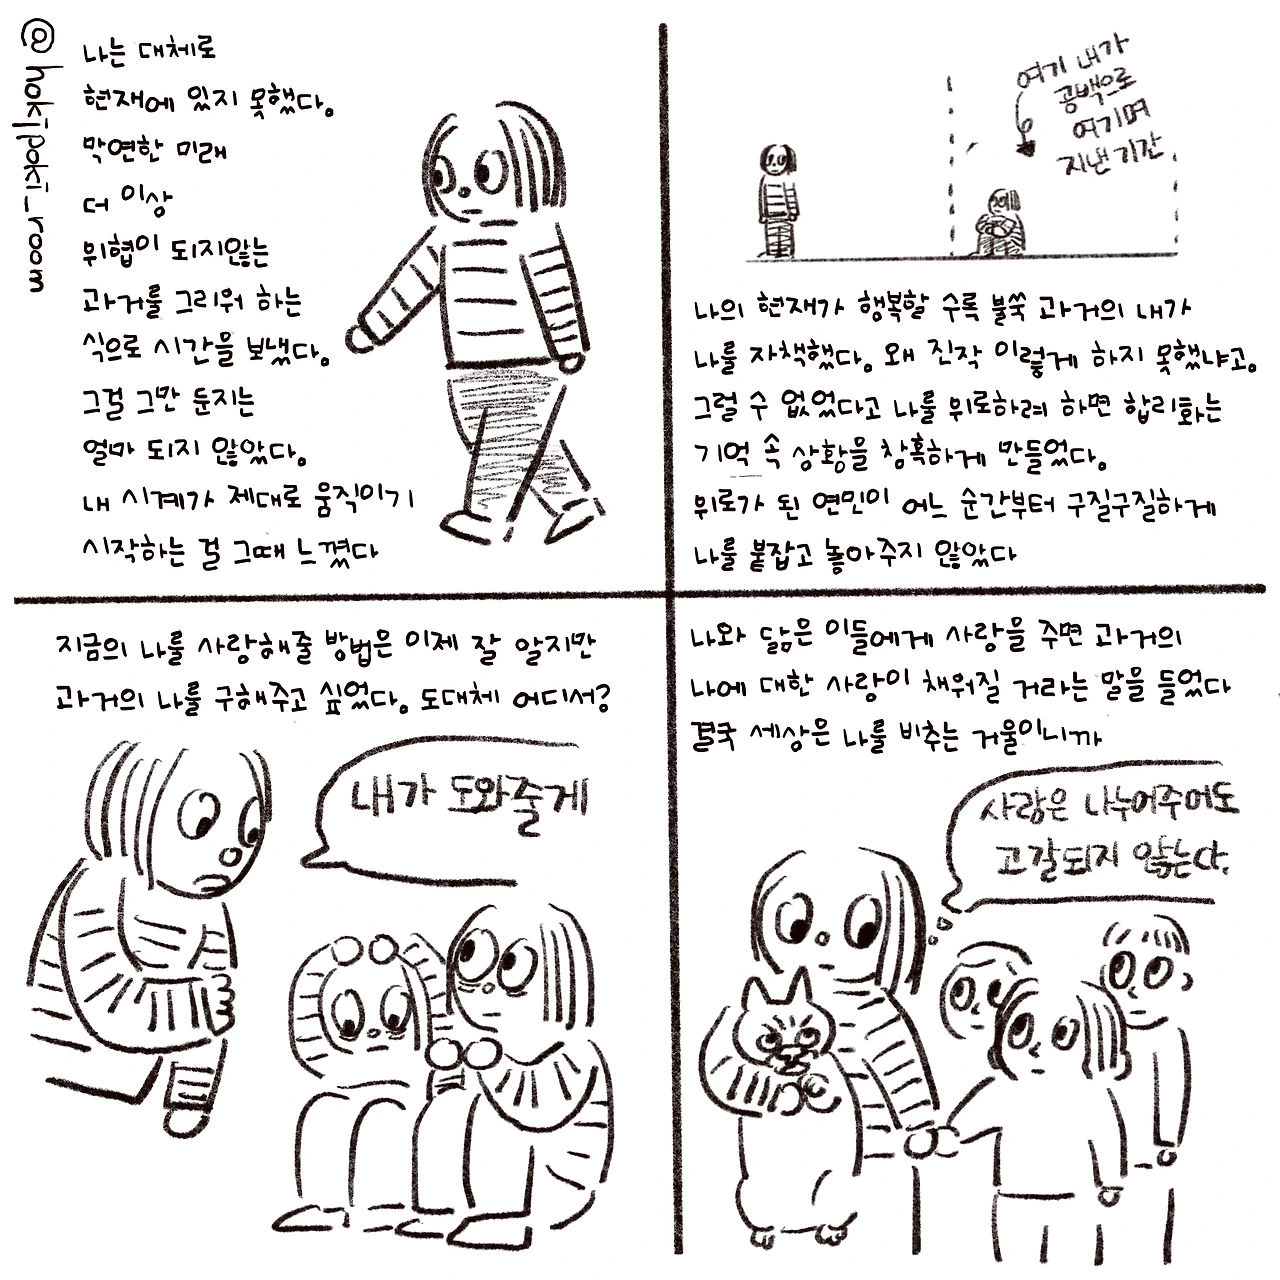 @hokipoki_room
나는 대체로
현재에 있지 못했다.
막연한 미래
더 이상
위협이 되지않는
과거를 그리워 하는
식으로 시간을 보냈다.
그걸 그만 둔지는
얼마 되지 않았다.
내 시계가 제대로 움직이기
시작하는 걸 그때 느꼈다
여기 내가
공백으로
여기며
지낸 기간
나의 현재가 행복할 수록 불쑥 과거의 내가
나를 자책했다. 왜 진작 이렇게 하지 못했냐고.
그럴 수 없었다고 나를 위로하려 하면 합리화는
기억 속 상황을 참혹하게 만들었다.
위로가 된 연민이 어느 순간부터 구질구질하게
나를 붙잡고 놓아주지 않았다
지금의 나를 사랑해줄 방법은 이제 잘 알지만
과거의 나를 구해주고 싶었다. 도대체 어디서?
내가 도와줄게
나와 닮은 이들에게 사랑을 주면 과거의
나에 대한 사랑이 채워질 거라는 말을 들었다
결국 세상은 나를 비추는 거울이니까
사랑은 나누어주어도
고갈되지 않는다.